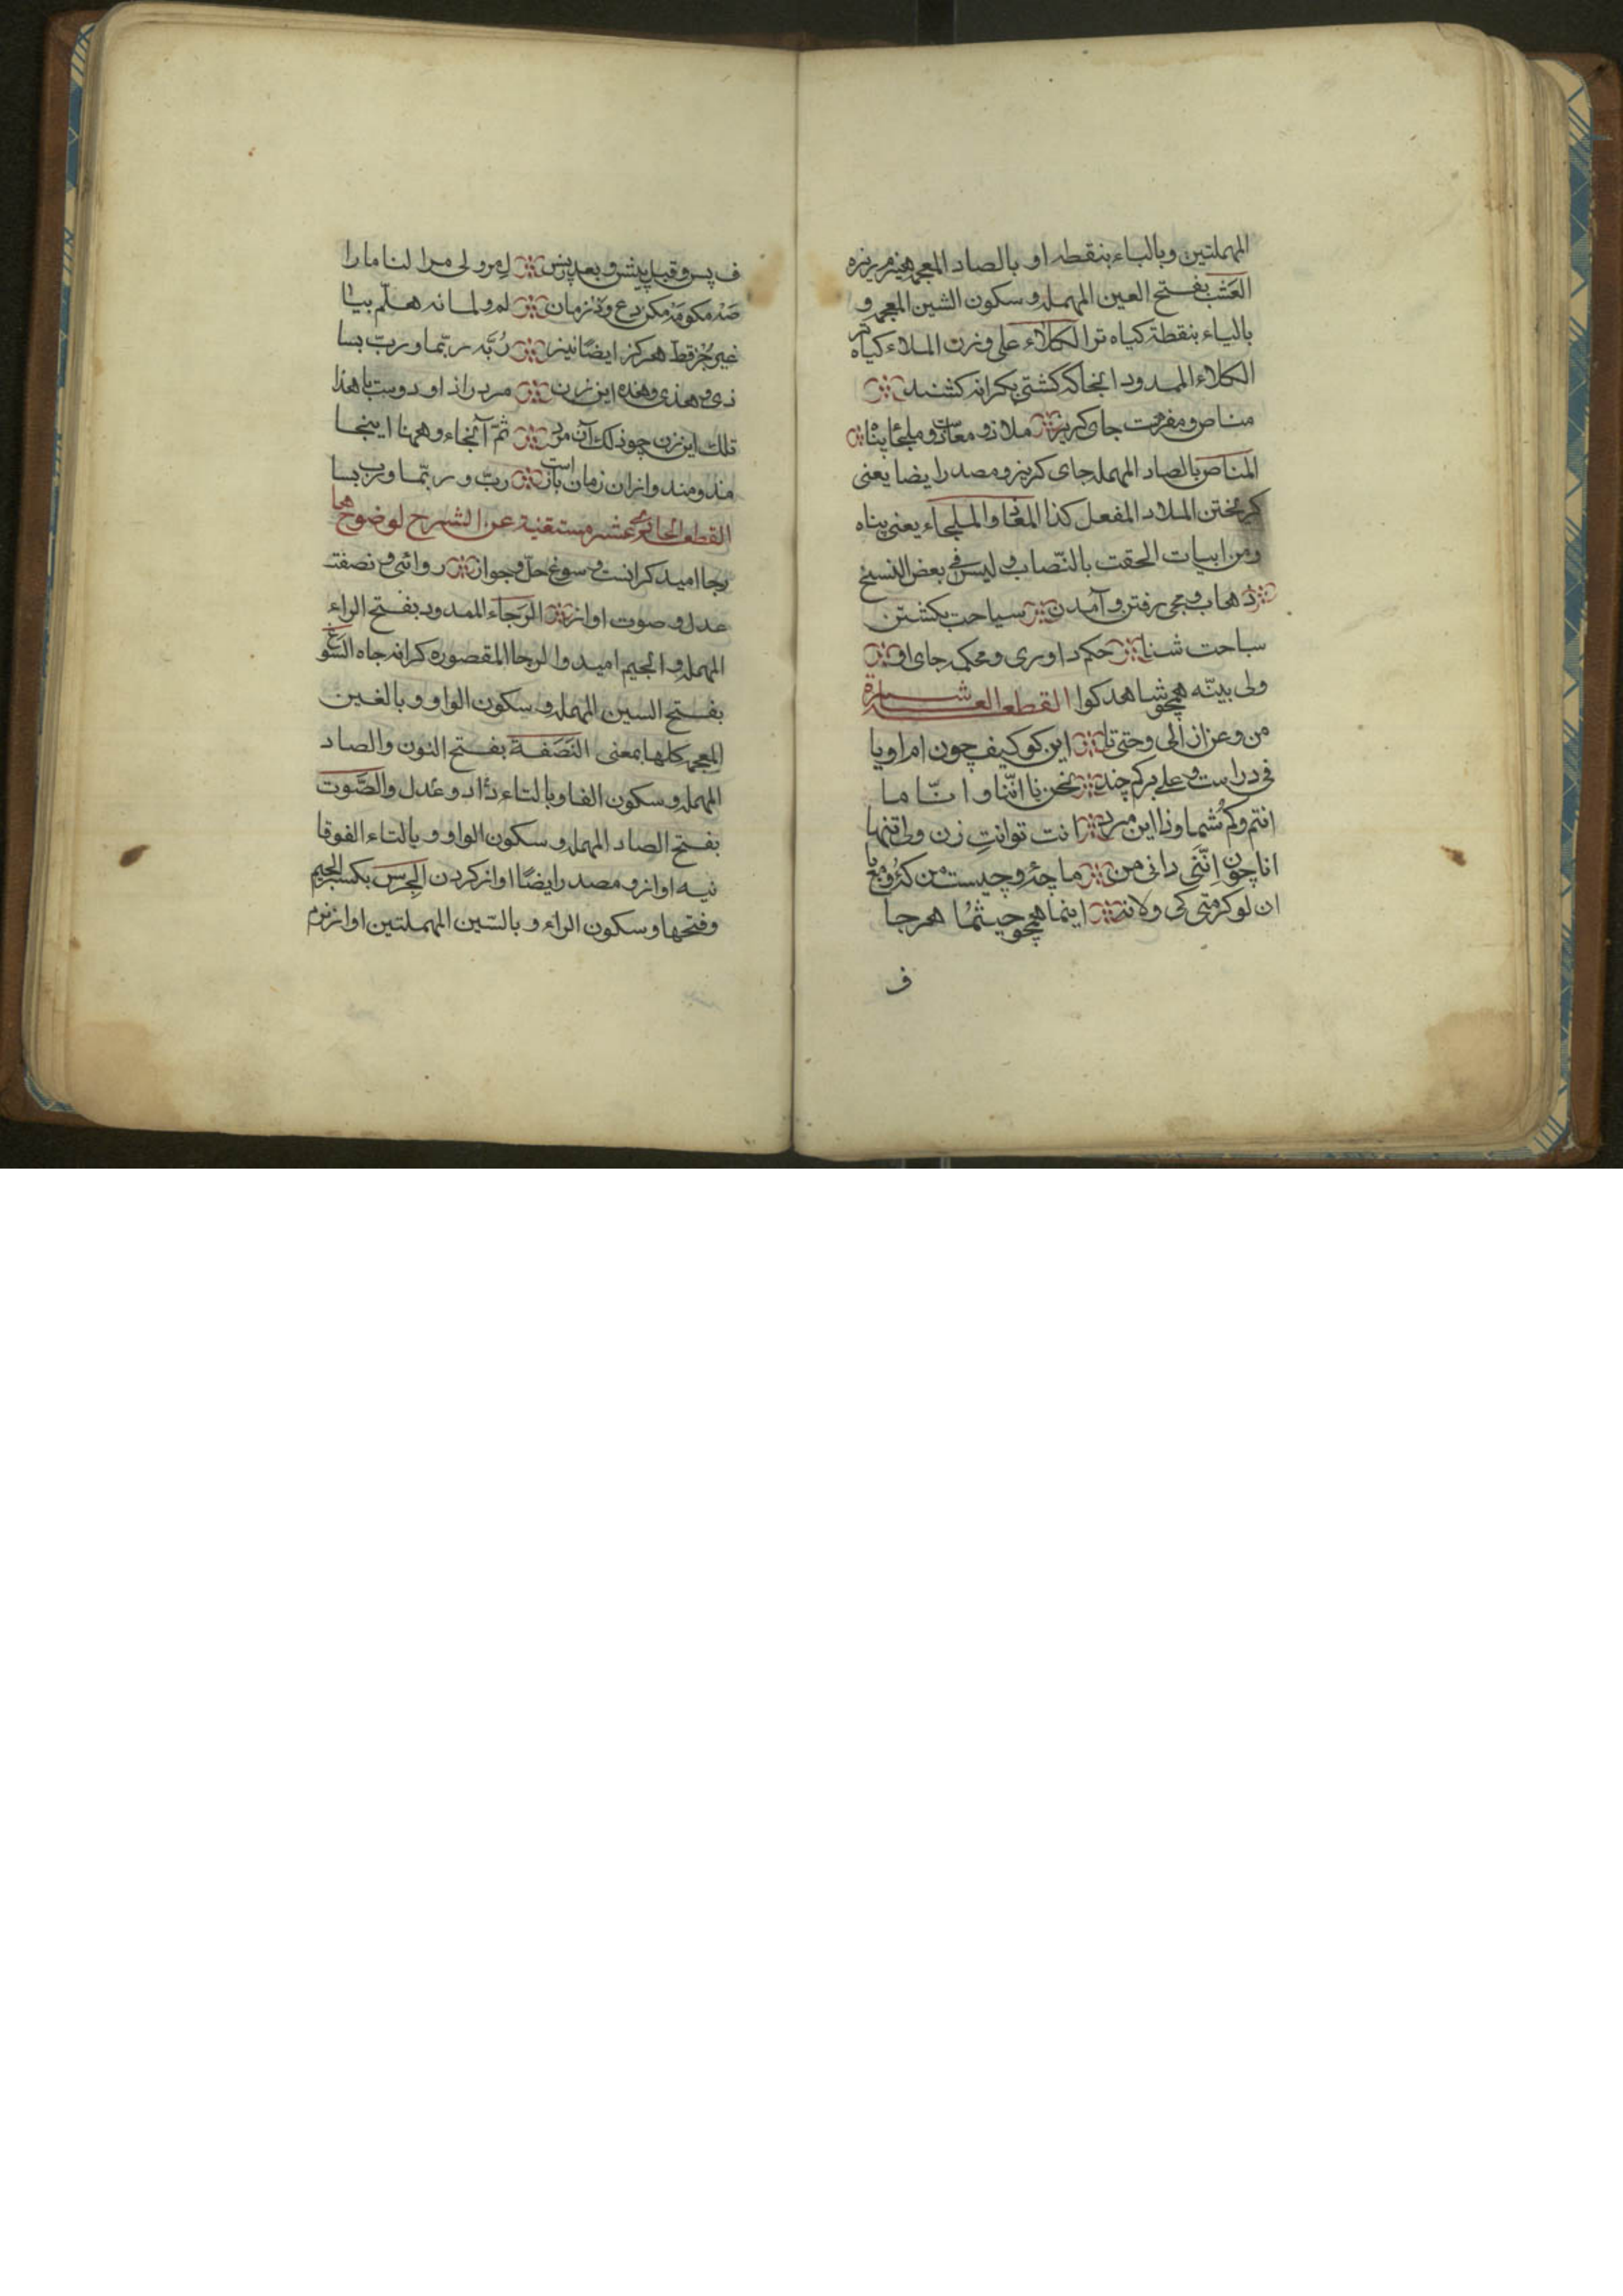 المهملتين وبالباء بنقطه او بالصاد المعجمه هيزم ريزه
العَشْب بفتح العين المهمله و سكون الشين المعجمه و
بالباء بنقطة كياه تر الكلاء على وزن الملاء كياه تر
الكلاء الممدود انجاكه كشتى بكرانه كشند
مناص ومفرّت جاى كريز ملاذ و معاذ و ملجا پناه
المناص بالصاد المهمله جاى كريز و مصدر ايضا يعنى
كريختن الملاد المفعل كذا المغا والملجاء يعنى پناه
ومن ابيات الحقت بالنّصاب و ليس فى بعض النسخ
ذهاب و مجى رفتن و آمدن سياحت بكشتن
سباحت شنا حكم داورى و محكمه جاى او
ولى بيّنه همچو شاهد كوا القطعه العاشرة
من وعن از الى وحتى تا اين كو كيف چون ام او يا
فى در است و على بر كم چند نحن نا اننا و انّا ما
انتم وكم شما وذا اين مرد انت توانتِ زن و لها تنها
انا چون اِنّنى دانى من ما چه و چيست من كه و مع با
ان لو كر متى كى ولا نه اينما همچو حيثما هرجا
ف
ف پس و قبل پيش و بعد پس لِمرو لى مرا لنا ما را
صَه مكو مَه مكن دع وذر مان لم و لما نه هلمّ بيا
غير جُز قطّ هركز ايضًا نيز رُبَّه ربّما و ربّ بسا
ذى و هذى و هذه اين زن مرد را ذا و دويت با هذا
تلك اين زن چو ذلك آن مرد ثَمّ آنجاء و ههنا اينجا
مذ و منذ و از ان زمان باز است ربّ و ربّما و رب بسا
القطعه الحادى عشر مستغنية عن الشرح لوضوحها
رجا اميد كرانست و سوغ حلّ و جواز روائى و نصفت
عدل و صوت اواز الرَجاء الممدود بفتح الراء
المهمله و الجيم اميد و الرجا المقصوره كرانه جاه السَوغ
بفتح السين المهمله و سكون الواو و بالغين
المعجمه كلها بمعنى النَصَفة بفتح النون والصاد
المهمله و سكون الفا و بالتاء داد و عدل والصَّوت
بفتح الصاد المهمله و سكون الواو و بالتاء الفوقا
نيه اواز و مصدر ايضًا اواز كردن الجرس بكسر الجيم
وفتحها و سكون الراء و بالسّين المهملتين اواز نرم